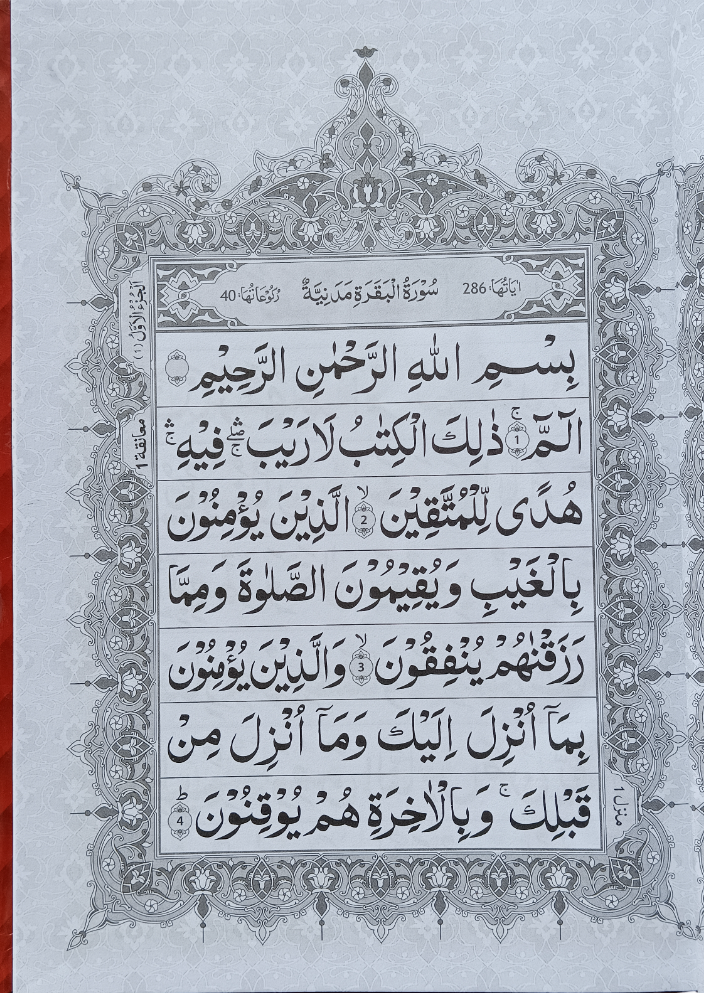 اٰيَاتُهَا: 286 سُوْرَةُ الْبَقَرَةِ مَدَنِيَّةٌ رُكُوْعَاتُهَا: 40
بِسْمِ اللّٰهِ الرَّحْمٰنِ الرَّحِيْمِ
الٓمّٓ ۚ 1 ذٰلِكَ الْكِتٰبُ لَا رَيْبَ ۛۖۚ فِيْهِ ۛۚ
هُدًى لِّلْمُتَّقِيْنَ ۙ 2 الَّذِيْنَ يُؤْمِنُوْنَ
بِالْغَيْبِ وَيُقِيْمُوْنَ الصَّلٰوةَ وَمِمَّا
رَزَقْنٰهُمْ يُنْفِقُوْنَ ۙ 3 وَالَّذِيْنَ يُؤْمِنُوْنَ
بِمَآ اُنْزِلَ اِلَيْكَ وَمَآ اُنْزِلَ مِنْ
قَبْلِكَ ۚ وَبِالْاٰخِرَةِ هُمْ يُوْقِنُوْنَ ؕ 4
اَلْجُزْءُ الْاَوَّلُ (١)
معانقة 1
منزل 1